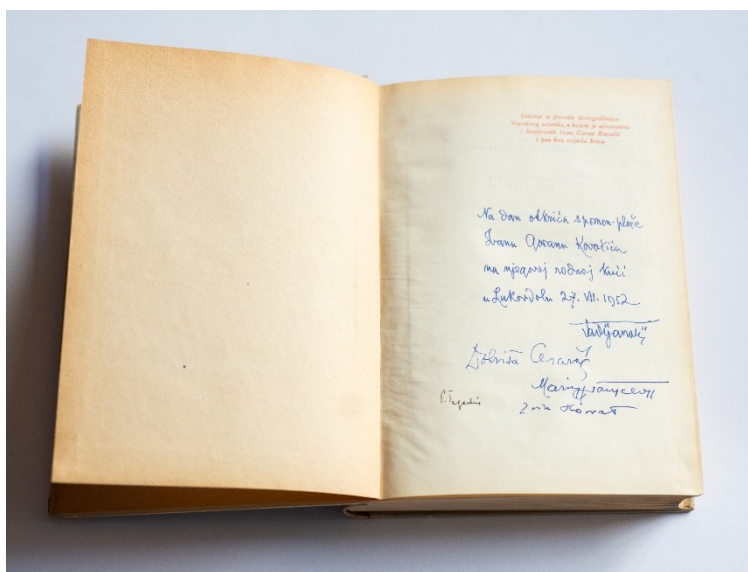 Izdanje u povodu desetgodišnjice
Narodnog ustanka, u kojem je učestvovao
i književnik Ivan Goran Kovačić
i pao kao
Na dan otkrića spomen-ploče
Ivanu Goranu Kovačiću
na njegovoj rodnoj kući
u Lukovdolu 27. VII. 1952
Tadijanović
Dobriša Cesarić
Marin Franičević